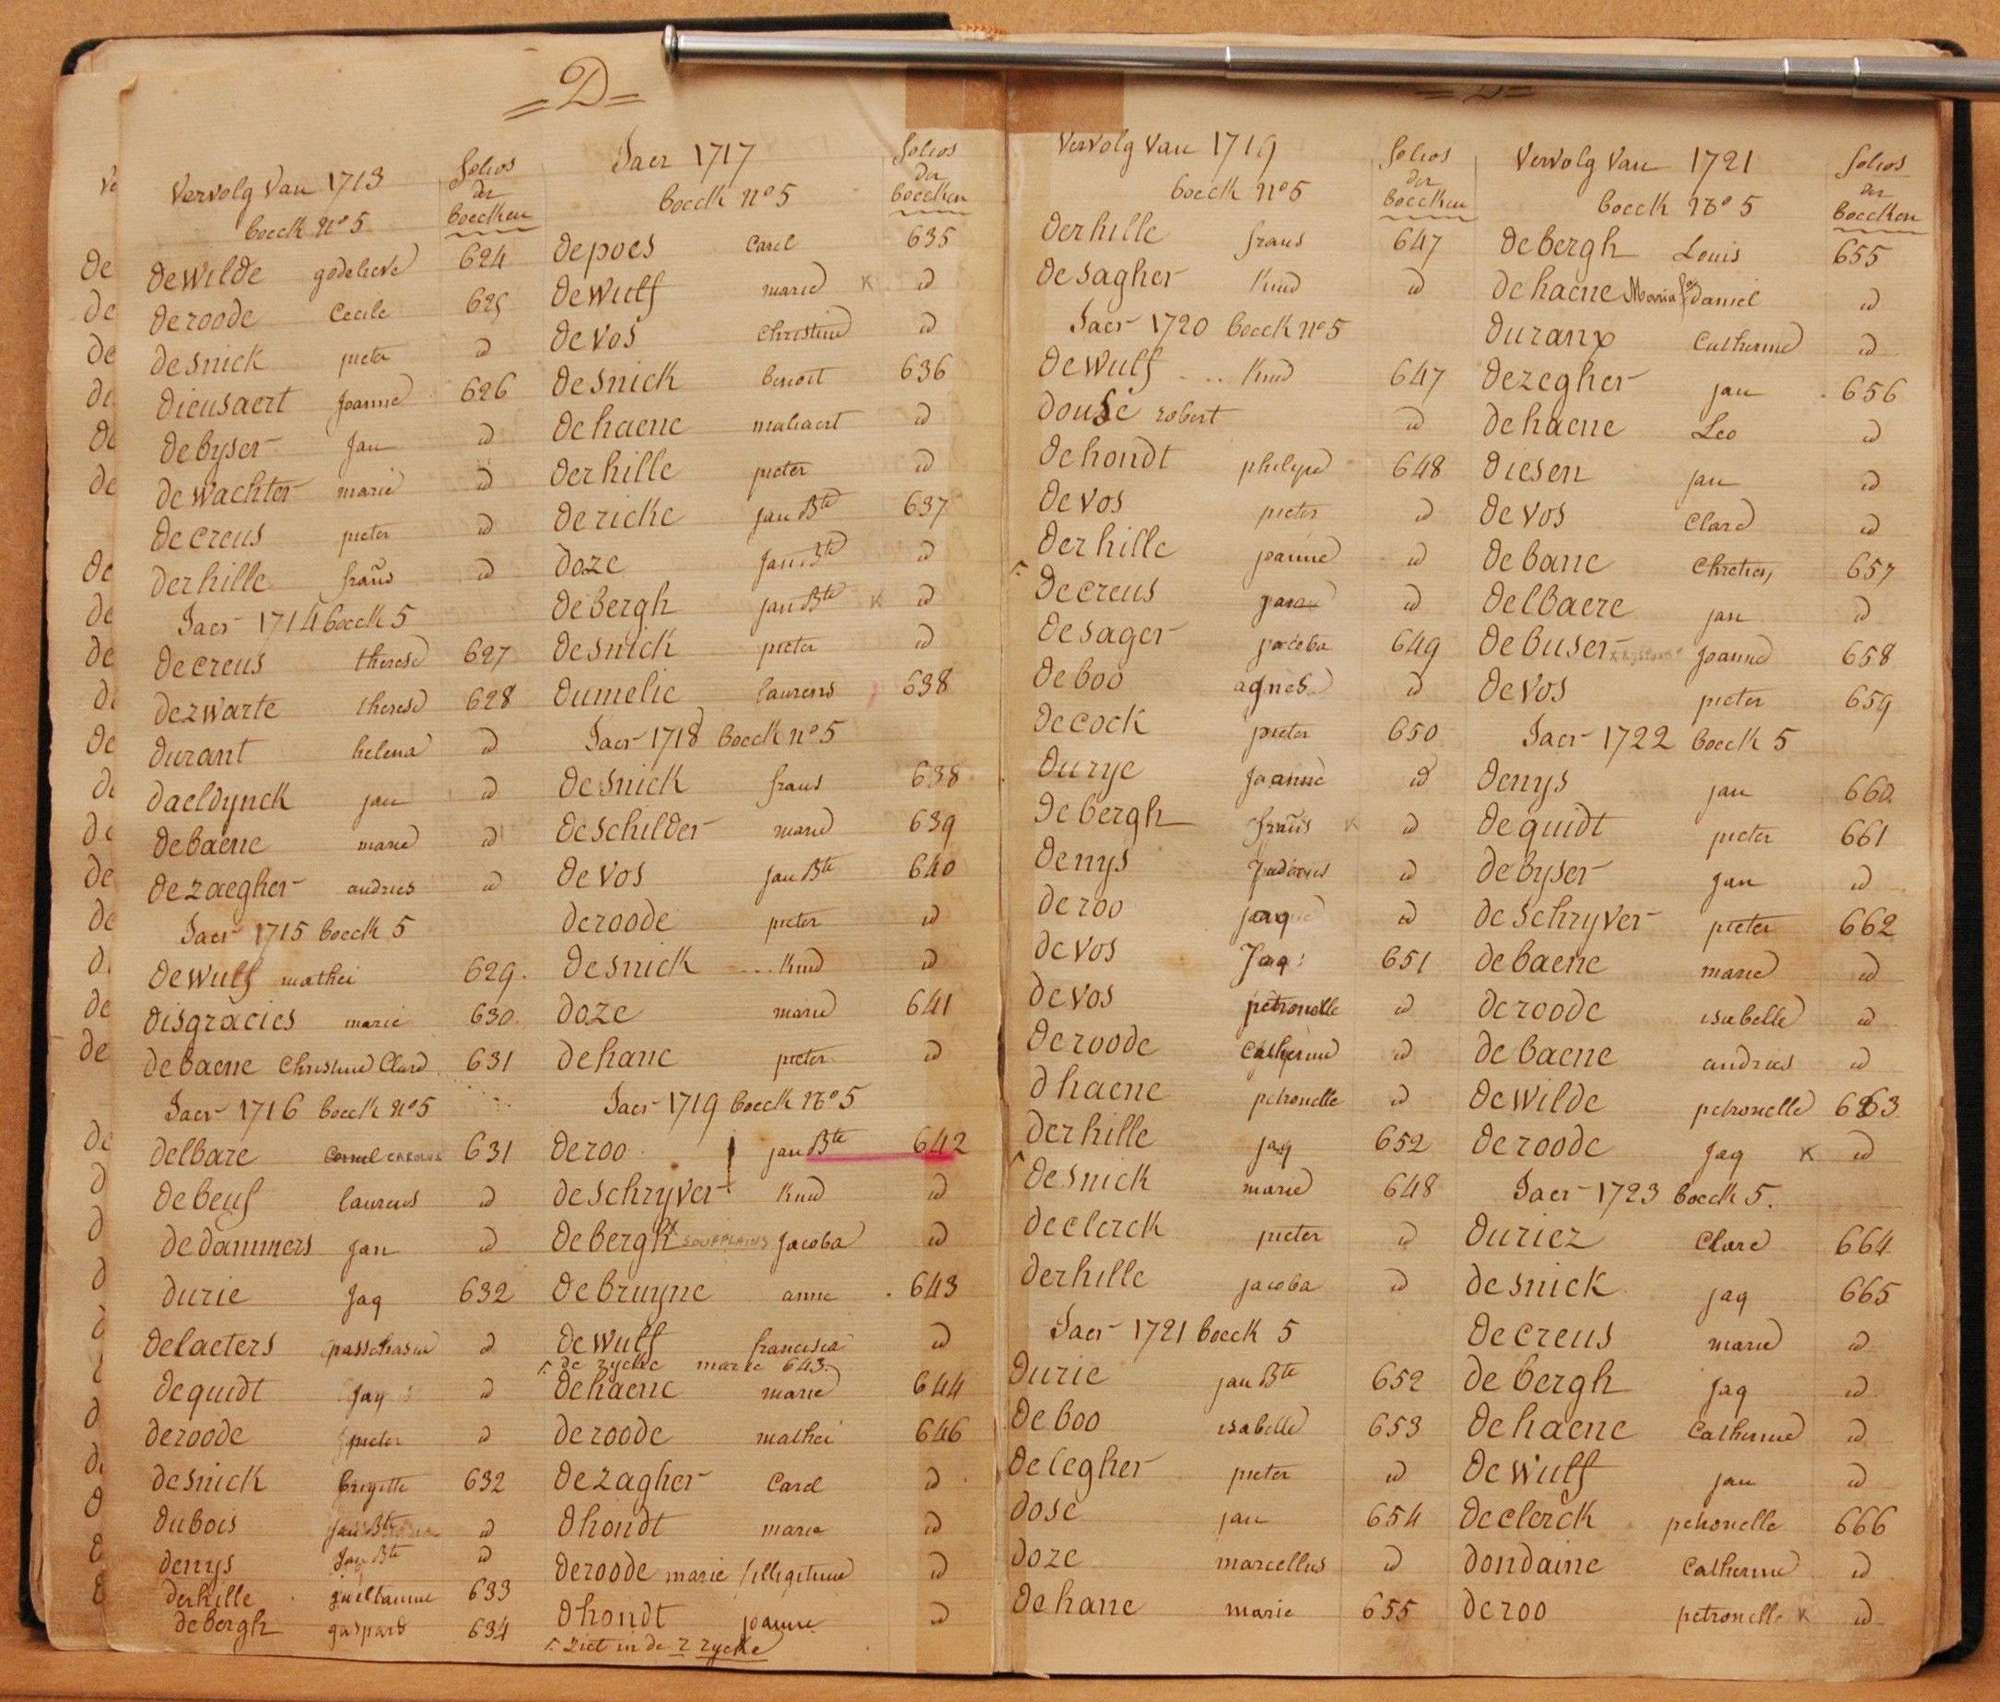 = D =
Vervolg van 1713
boeck nº 5
folios der boecken
de wilde godelieve 624
de roode Cecile 625
de snick pieter id
dieusaert joanne 626
de byser jan id
de wachter marie id
de creus pieter id
derhille frans id
Jaer 1714 boeck 5
de creus therese 627
de zwarte therese 628
durant helena id
daeldynck jan id
de baene marie id
de zaegher andries id
Jaer 1715 boeck 5
de wulf mathei 629.
disgracies marie 630.
de baene Christine Clare 631
Jaer 1716 boeck nº 5
delbare Cornel CAROLUS 631
de beuf laurens id
de dammers jan id
durie jaq 632
de laeters passchasia id
de quidt jaq id
de roode pieter id
de snick brigitte 632
dubois jan Bte id
denys jan Bte id
derhille guilliaume 633
de bergh gaspard 634
Jaer 1717
boeck nº 5
folios der boecken
de poes Carel 635
de wulf marie x id
de vos Christine id
de snick benoit 636
de haene maliaert id
derhille pieter id
de ricke jan Bte 637
doze jan Bte id
de bergh jan Bte x id
de snick pieter id
dumelie laurens 638
Jaer 1718 boeck nº 5
de snick frans 638
de schilder marie 639
de vos jan Bte 640
de roode pieter id
de snick ... kind id
doze marie 641
de hane pieter id
Jaer 1719 boeck nº 5
de roo jan Bte 642
de schryver kind id
de bergh x SOUFFLAINS jacoba id
de bruyne anne . 643
de wulf francisca id
r. de zycke marie 643.
de haene marie 644
de roode mathei 646
de zagher Carel id
d hondt marie id
de roode marie / illigitime id
d hondt joanne id
r. ziet in de z zycke
= D =
Vervolg van 1719
boeck nº 5
folios der boecken
derhille frans 647
de sagher kind id
Jaer 1720 boeck nº 5
de wulf ... kind 647
dousé robert id
de hondt philipe 648
de vos pieter id
derhille joanne id
r. de creus jan id
de sager jacoba 649
de boo agnes id
de cock pieter 650
durye joanne id
de bergh frans x id
denys judocus id
de roo jaq id
de vos jaq: 651
de vos petronelle id
de roode Catherine id
d haene petronelle id
derhille jaq 652
r de snick marie 648
de clerck pieter id
derhille jacoba id
Jaer 1721 boeck 5
durie jan Bte 652
de boo isabelle 653
de cegher pieter id
dose jan 654
doze marcellus id
de hane marie 655
Vervolg van 1721
boeck nº 5
folios der boecken
de bergh Louis 655
de haene Maria daniel id
duranx Catherine id
de zegher jan . 656
de haene Leo id
diesen jan id
de vos Clare id
de bane Chretien 657
delbaere jan id
de buser joanne 658
de vos pieter 659
Jaer 1722 boeck 5
denys jan 660
de quidt pieter 661
de byser jan id
de schryver pieter 662
de baene marie id
de roode isabelle id
de baene andries id
de wilde petronelle 663
de roode jaq x id
Jaer 1723 boeck 5.
duriez Clare 664
de snick jaq 665
de creus marie id
de bergh jaq id
de haene Catherine id
de wulf jan id
de clerck petronelle 666
dondaine Catherine id
de roo petronelle x id